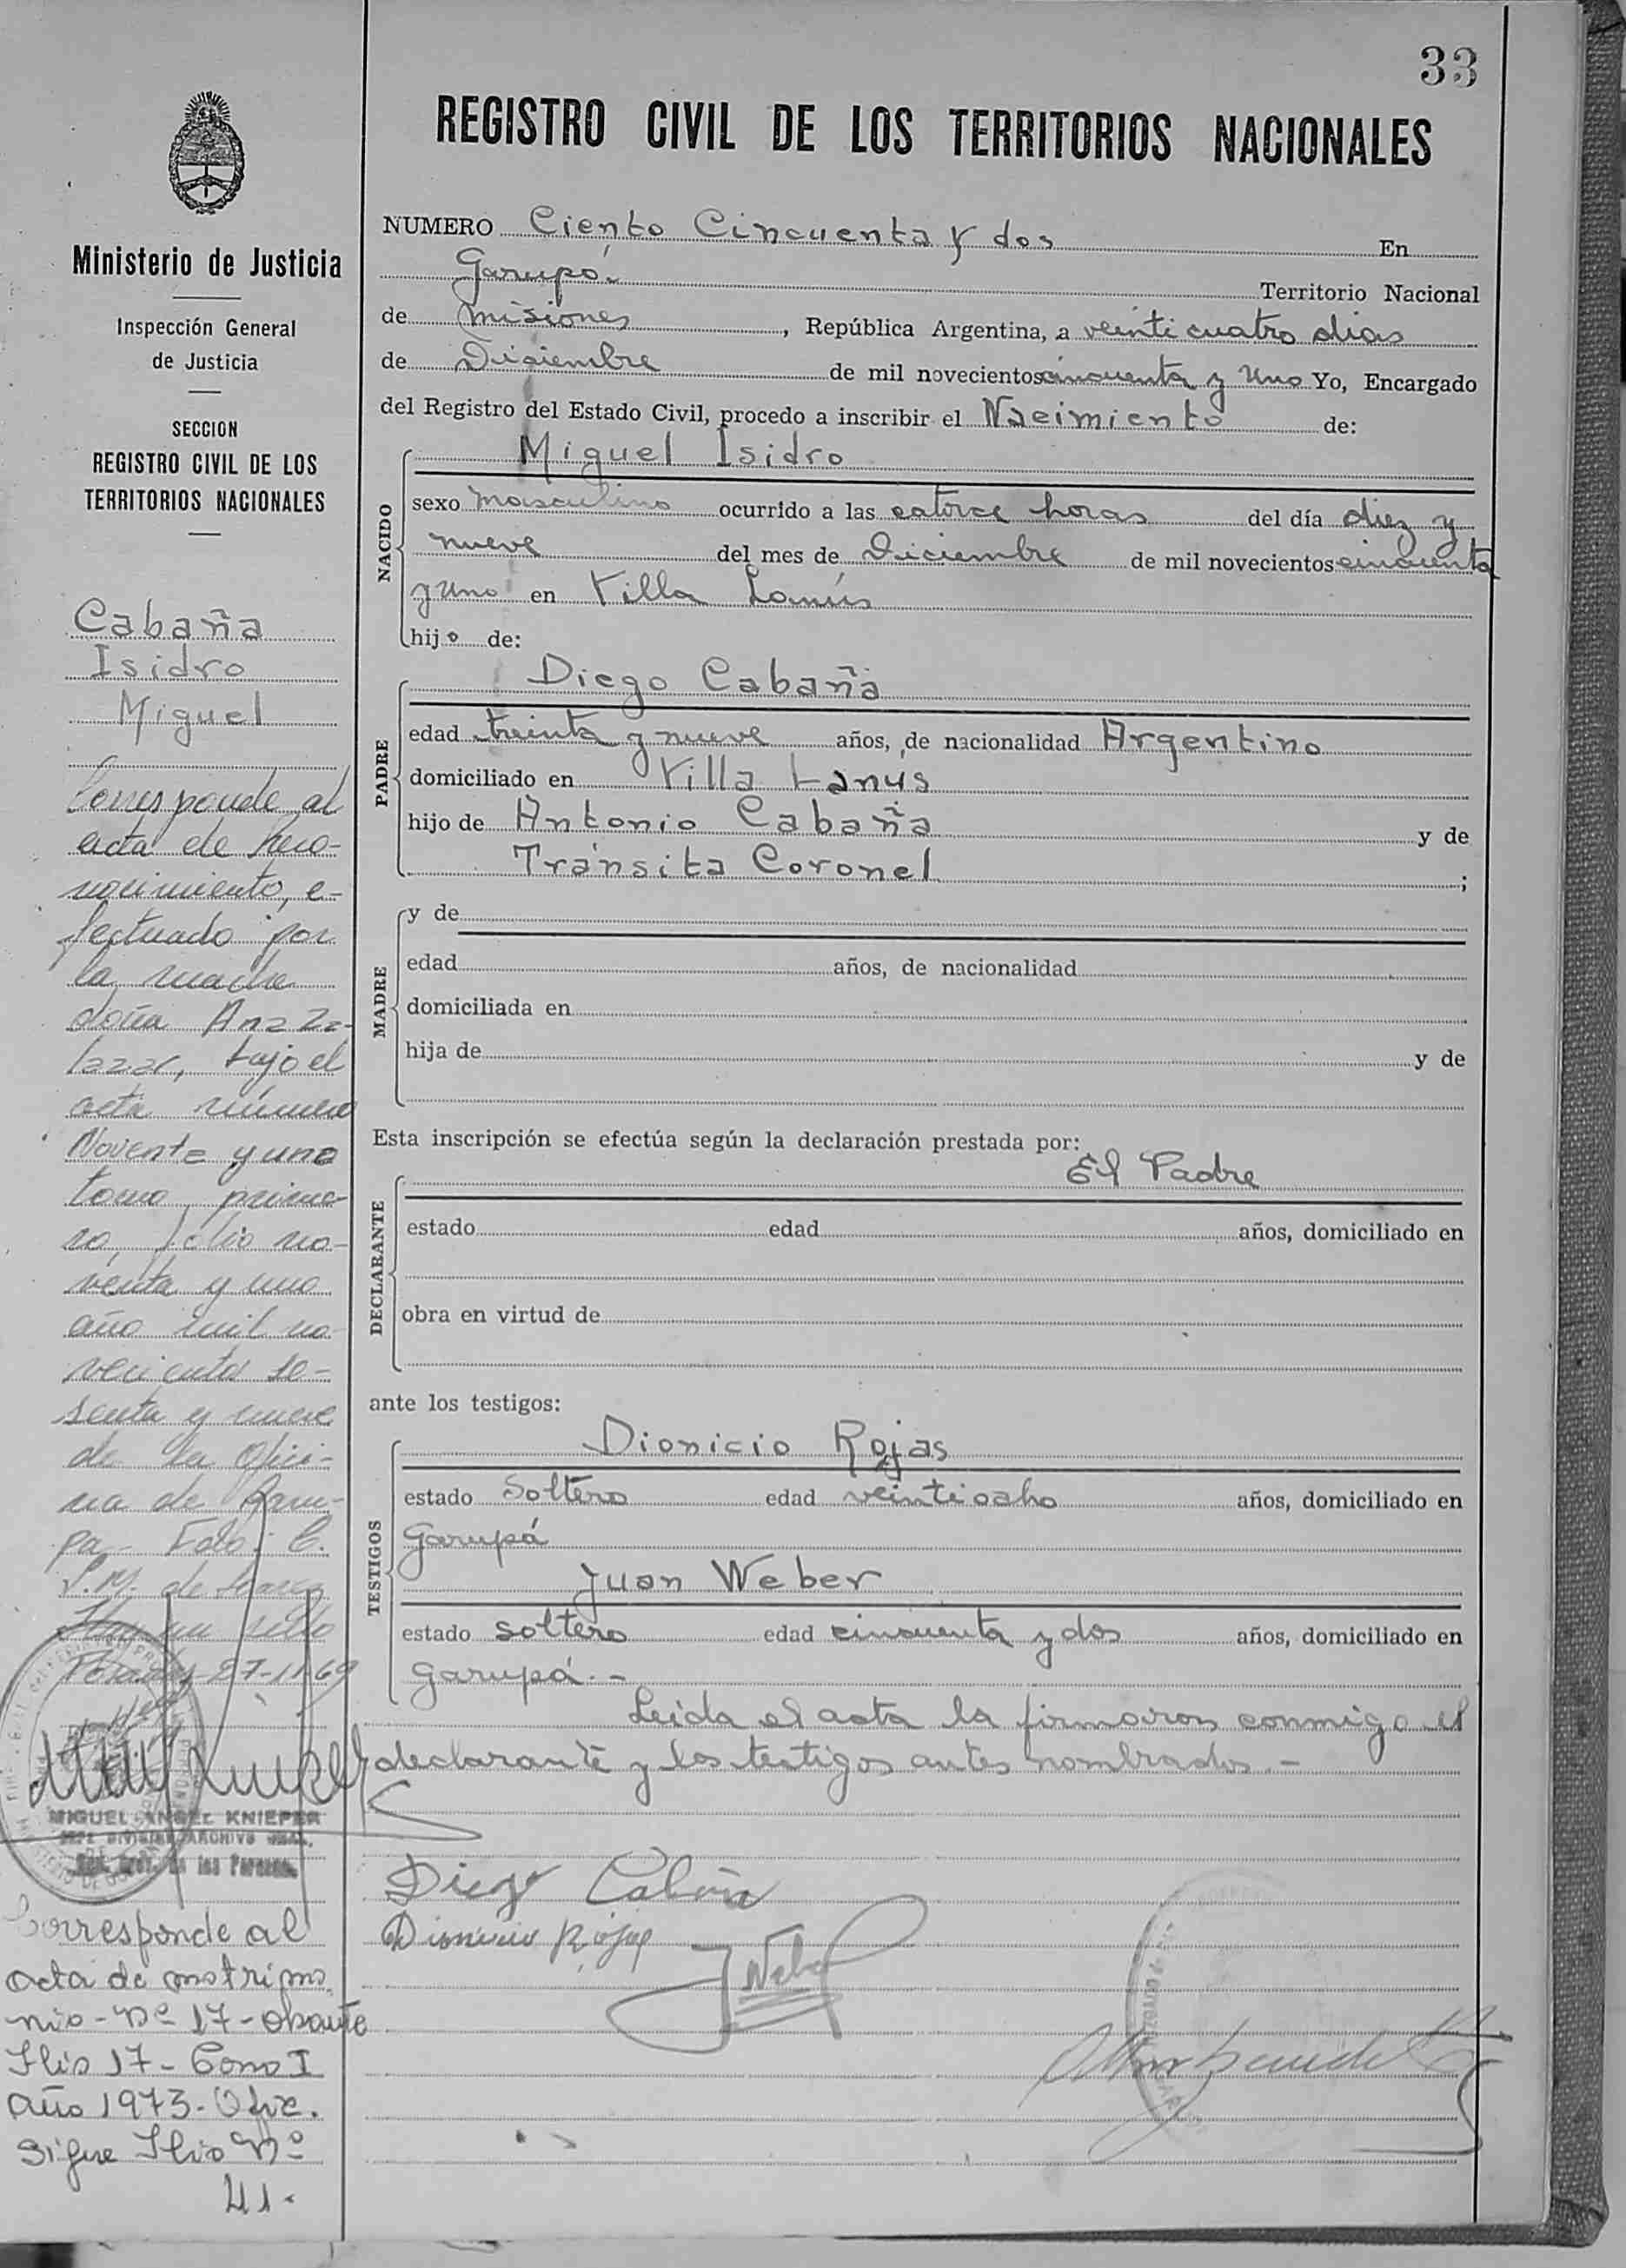 33
REGISTRO CIVIL DE LOS TERRITORIOS NACIONALES
Ministerio de Justicia
Inspección General
de Justicia
SECCION
REGISTRO CIVIL DE LOS
TERRITORIOS NACIONALES
Cabaña
Isidro
Miguel
Corresponde al
acta de reco-
nocimiento, e-
fectuado por
la madre
doña Ana Za-
lazar, bajo el
acta número
Noventa y uno
tomo prime-
ro, folio no-
venta y uno
año mil no-
vecientos se-
senta y nueve
de la Ofici-
na de Garu-
pa - Fdo: C.
P. M. de
Hay un sello
Posadas 27-11-69
MIGUEL ANGEL KNIEPER
JEFE DIVISION ARCHIVO GRAL.
Reg. Prov. de las Personas
Corresponde al
acta de matrimo
nio - Nº 17 - obrante
Flio 17 - Tomo I
Año 1973 - Ofic.
Sigue Flio Nº
41.
NUMERO Ciento Cincuenta y dos En
Garupá Territorio Nacional
de Misiones, República Argentina, a veinticuatro dias
de Diciembre de mil novecientos cincuenta y uno Yo, Encargado
del Registro del Estado Civil, procedo a inscribir el Nacimiento de:
NACIDO
Miguel Isidro
sexo masculino ocurrido a las catorce horas del día diez y
nueve del mes de Diciembre de mil novecientos cincuenta
y uno en Villa Lanús
hijo de:
PADRE
Diego Cabaña
edad treinta y nueve años, de nacionalidad Argentino
domiciliado en Villa Lanús
hijo de Antonio Cabaña y de
Tránsita Coronel ;
MADRE
y de
edad años, de nacionalidad
domiciliada en
hija de y de
Esta inscripción se efectúa según la declaración prestada por:
DECLARANTE
El Padre
estado edad años, domiciliado en
obra en virtud de
ante los testigos:
TESTIGOS
Dionicio Rojas
estado Soltero edad veintiocho años, domiciliado en
Garupá
Juan Weber
estado soltero edad cincuenta y dos años, domiciliado en
Garupá.-
Leida el acta la firmaron conmigo el
declarante y los testigos antes nombrados.-
Diego Cabaña
Dionicio Rojas
J Weber